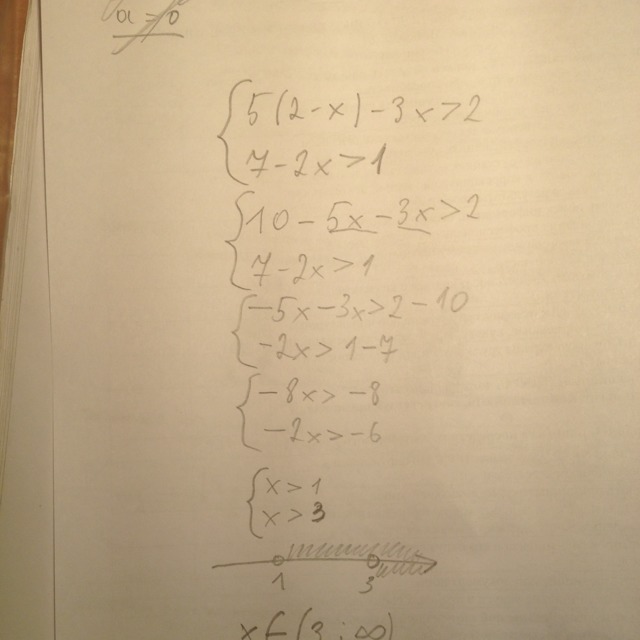 a = 0
{ 5(2-x)-3x>2
7-2x>1
{ 10-5x-3x>2
7-2x>1
{ -5x-3x>2-10
-2x>1-7
{ -8x>-8
-2x>-6
{ x>1
x>3
1 3
x∈(3;∞)